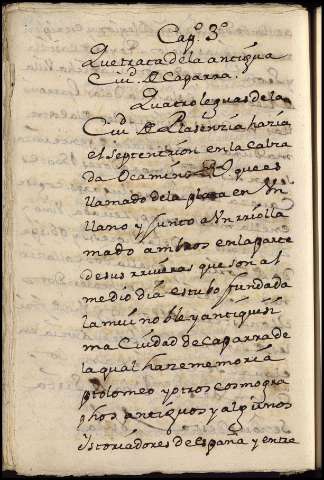 Capº. 3º
Que trata de la antigua
Ciud. de Caparra.
Quatro leguas de la
Ciud de Plasenzia hazia
el septentrion en la Calza
da O camino Rl que es
llamado de la plata en vn
llano y junto a vn rrio lla
mado ambros en la parte
de sus rriueras que son al
medio dia estubo fundada
la mui noble y antiguisi
ma Ciudad de Caparra de
la qual haze memoria
ptolomeo y otros cosmogra
phos antiguos y algunos
istoriadores de españa y entre